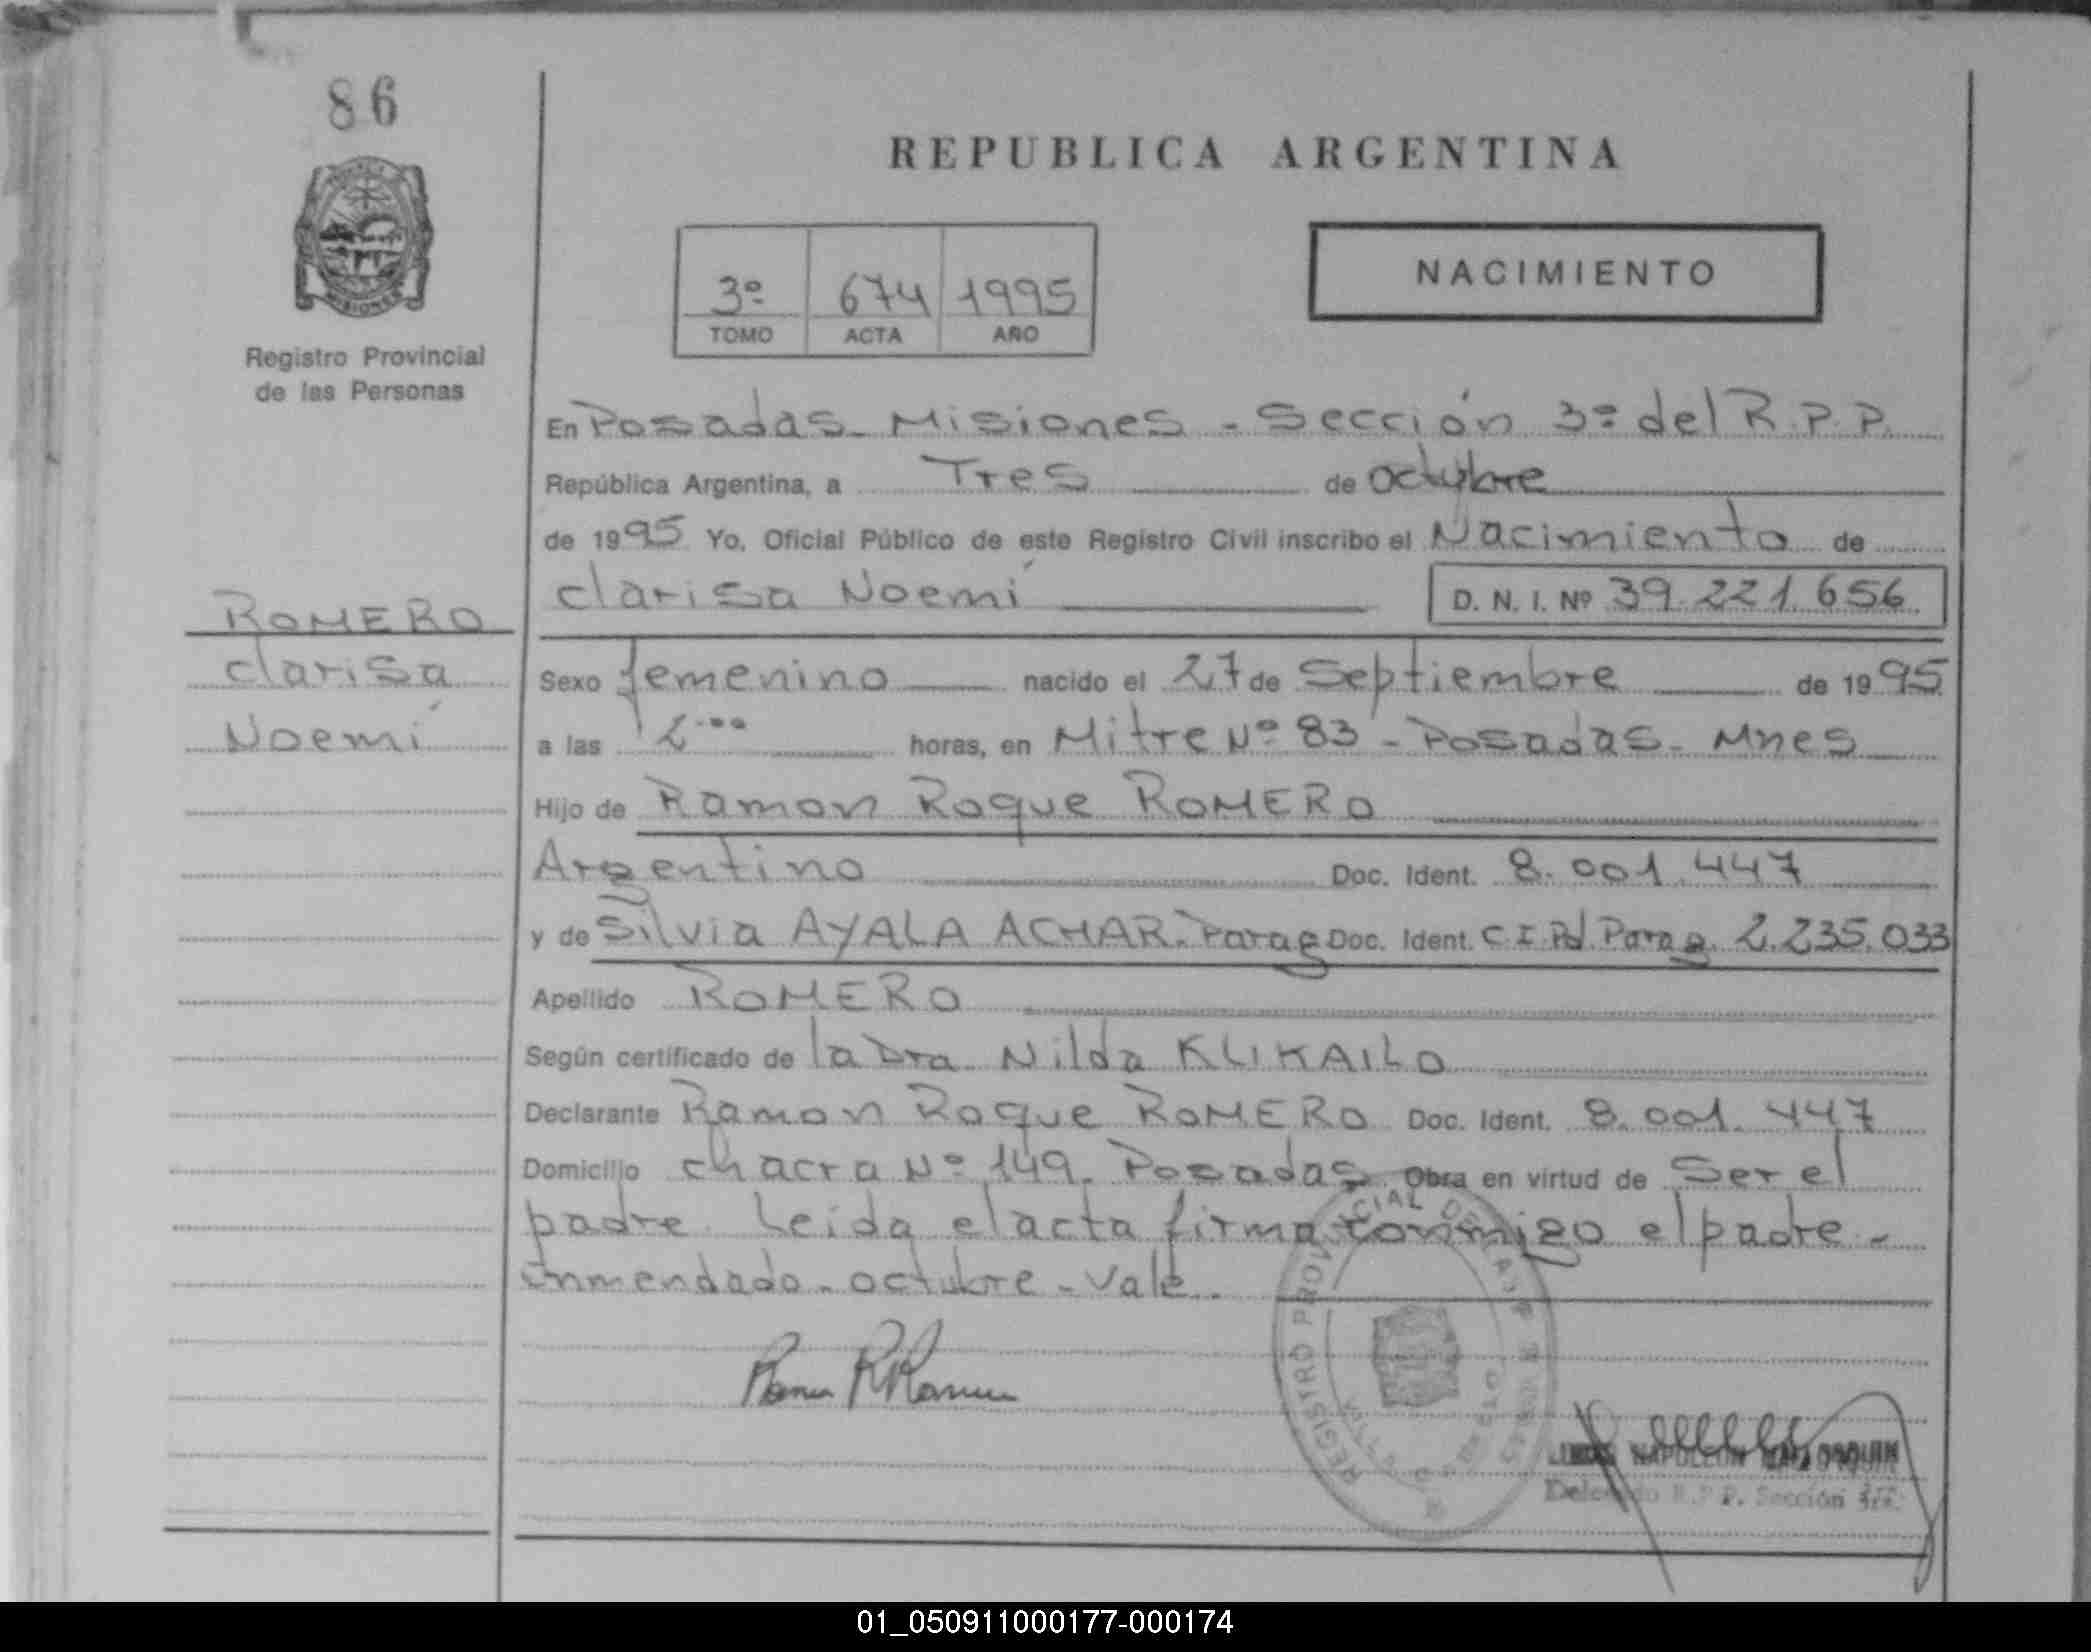 86
REPUBLICA ARGENTINA
MISIONES
Registro Provincial
de las Personas
3º 674 1995
TOMO ACTA AÑO
NACIMIENTO
En Posadas - Misiones - Sección 3º del R.P.P.
República Argentina, a Tres de octubre
de 1995 Yo, Oficial Público de este Registro Civil inscribo el Nacimiento de
clarisa Noemí D. N. I. Nº 39.221.656
ROMERO
clarisa
Noemí
Sexo femenino nacido el 27 de Septiembre de 1995
a las horas, en Mitre Nº 83 - Posadas - Mnes
Hijo de Ramon Roque ROMERO
Argentino Doc. Ident. 8.001.447
y de Silvia AYALA ACHAR. Parag Doc. Ident. C.I. Pol. Parag. 2.235.033
Apellido ROMERO
Según certificado de la Dra. Nilda KLIKAILO
Declarante Ramon Roque ROMERO Doc. Ident. 8.001.447
Domicilio chacra Nº 149. Posadas Obra en virtud de Ser el
padre. Leida el acta firma conmigo el padre -
Enmendado - octubre - vale.
REGISTRO PROVINCIAL DE LAS
NAPOLEON
Delegado R.P.P. Sección 3ra.
01_050911000177-000174